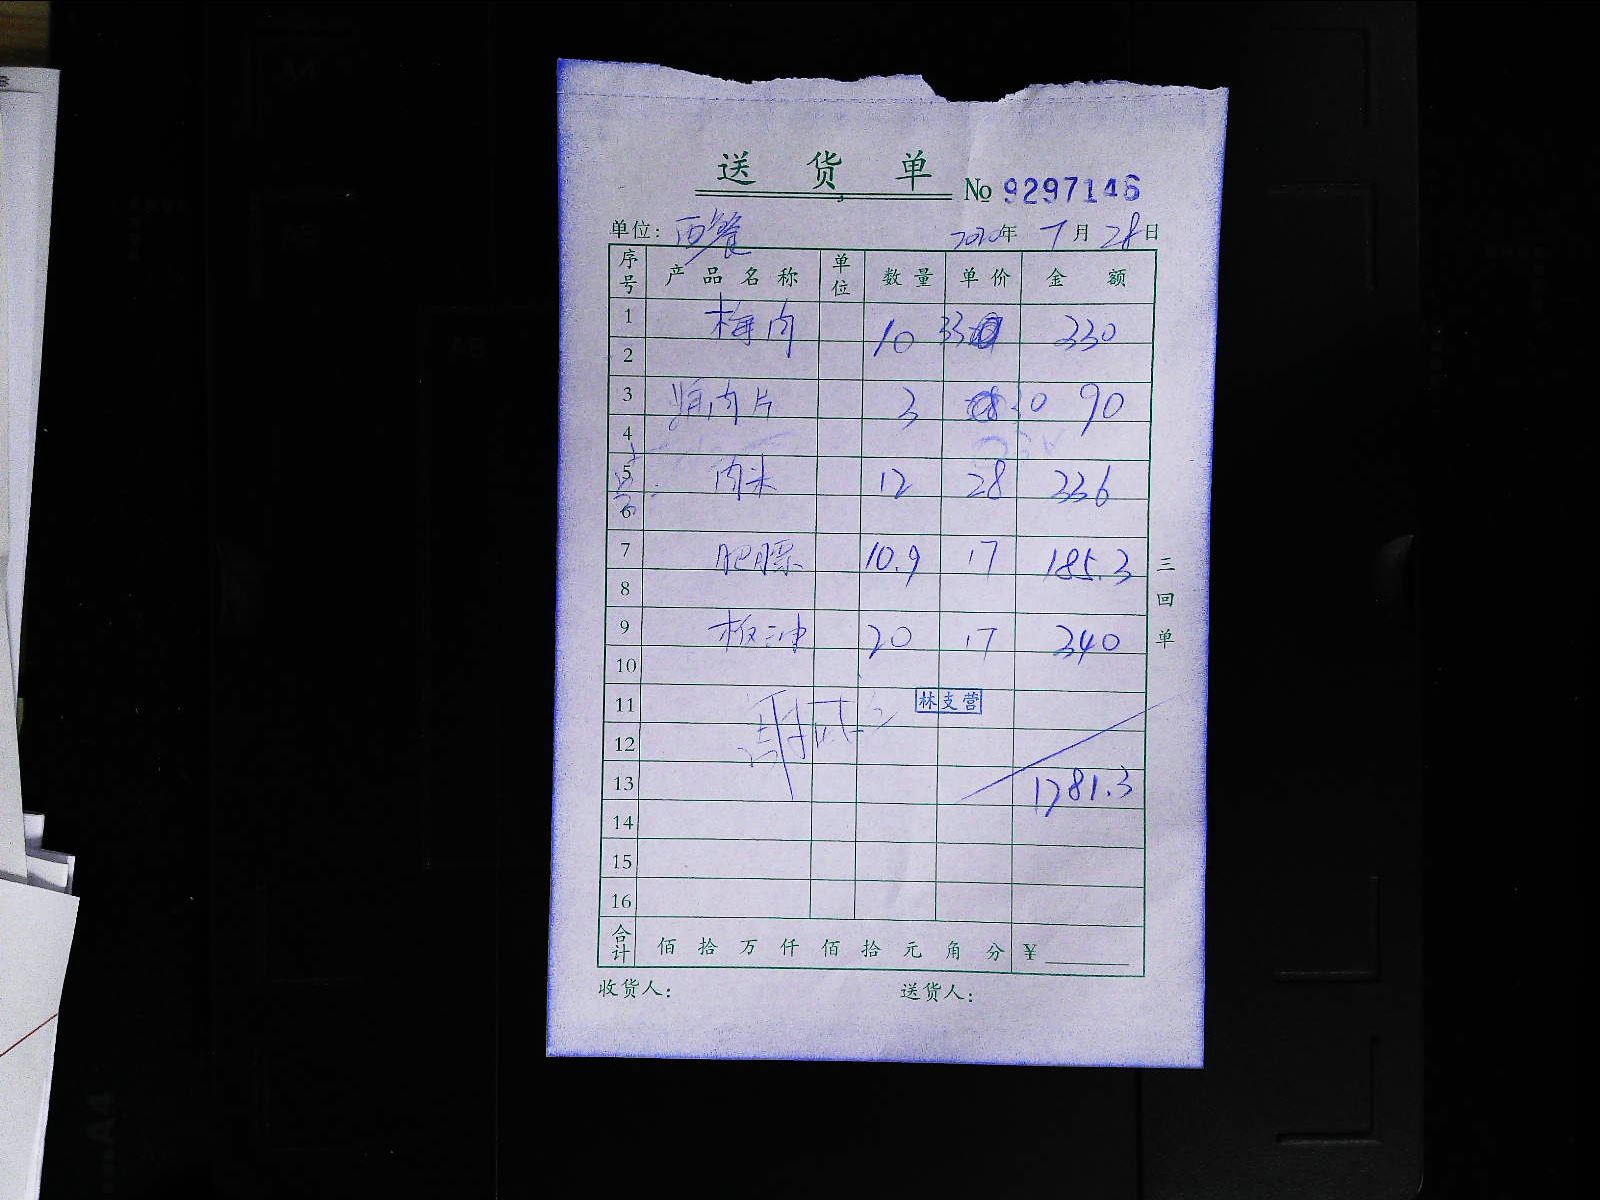 送 货 单 № 9297146
单位: 西餐 2020年 7月 28日
序号 产品名称 单位 数量 单价 金额
1 梅肉 10 33 330
2
3 肉片 3 30 90
4
5 肉米 12 28 336
6
7 肥膘 10.9 17 185.3
8
9 板油 20 17 340
10
11 林支营
12
13 1281.3
14
15
16
合计 佰 拾 万 仟 佰 拾 元 角 分 ¥
收货人: 送货人:
三回单